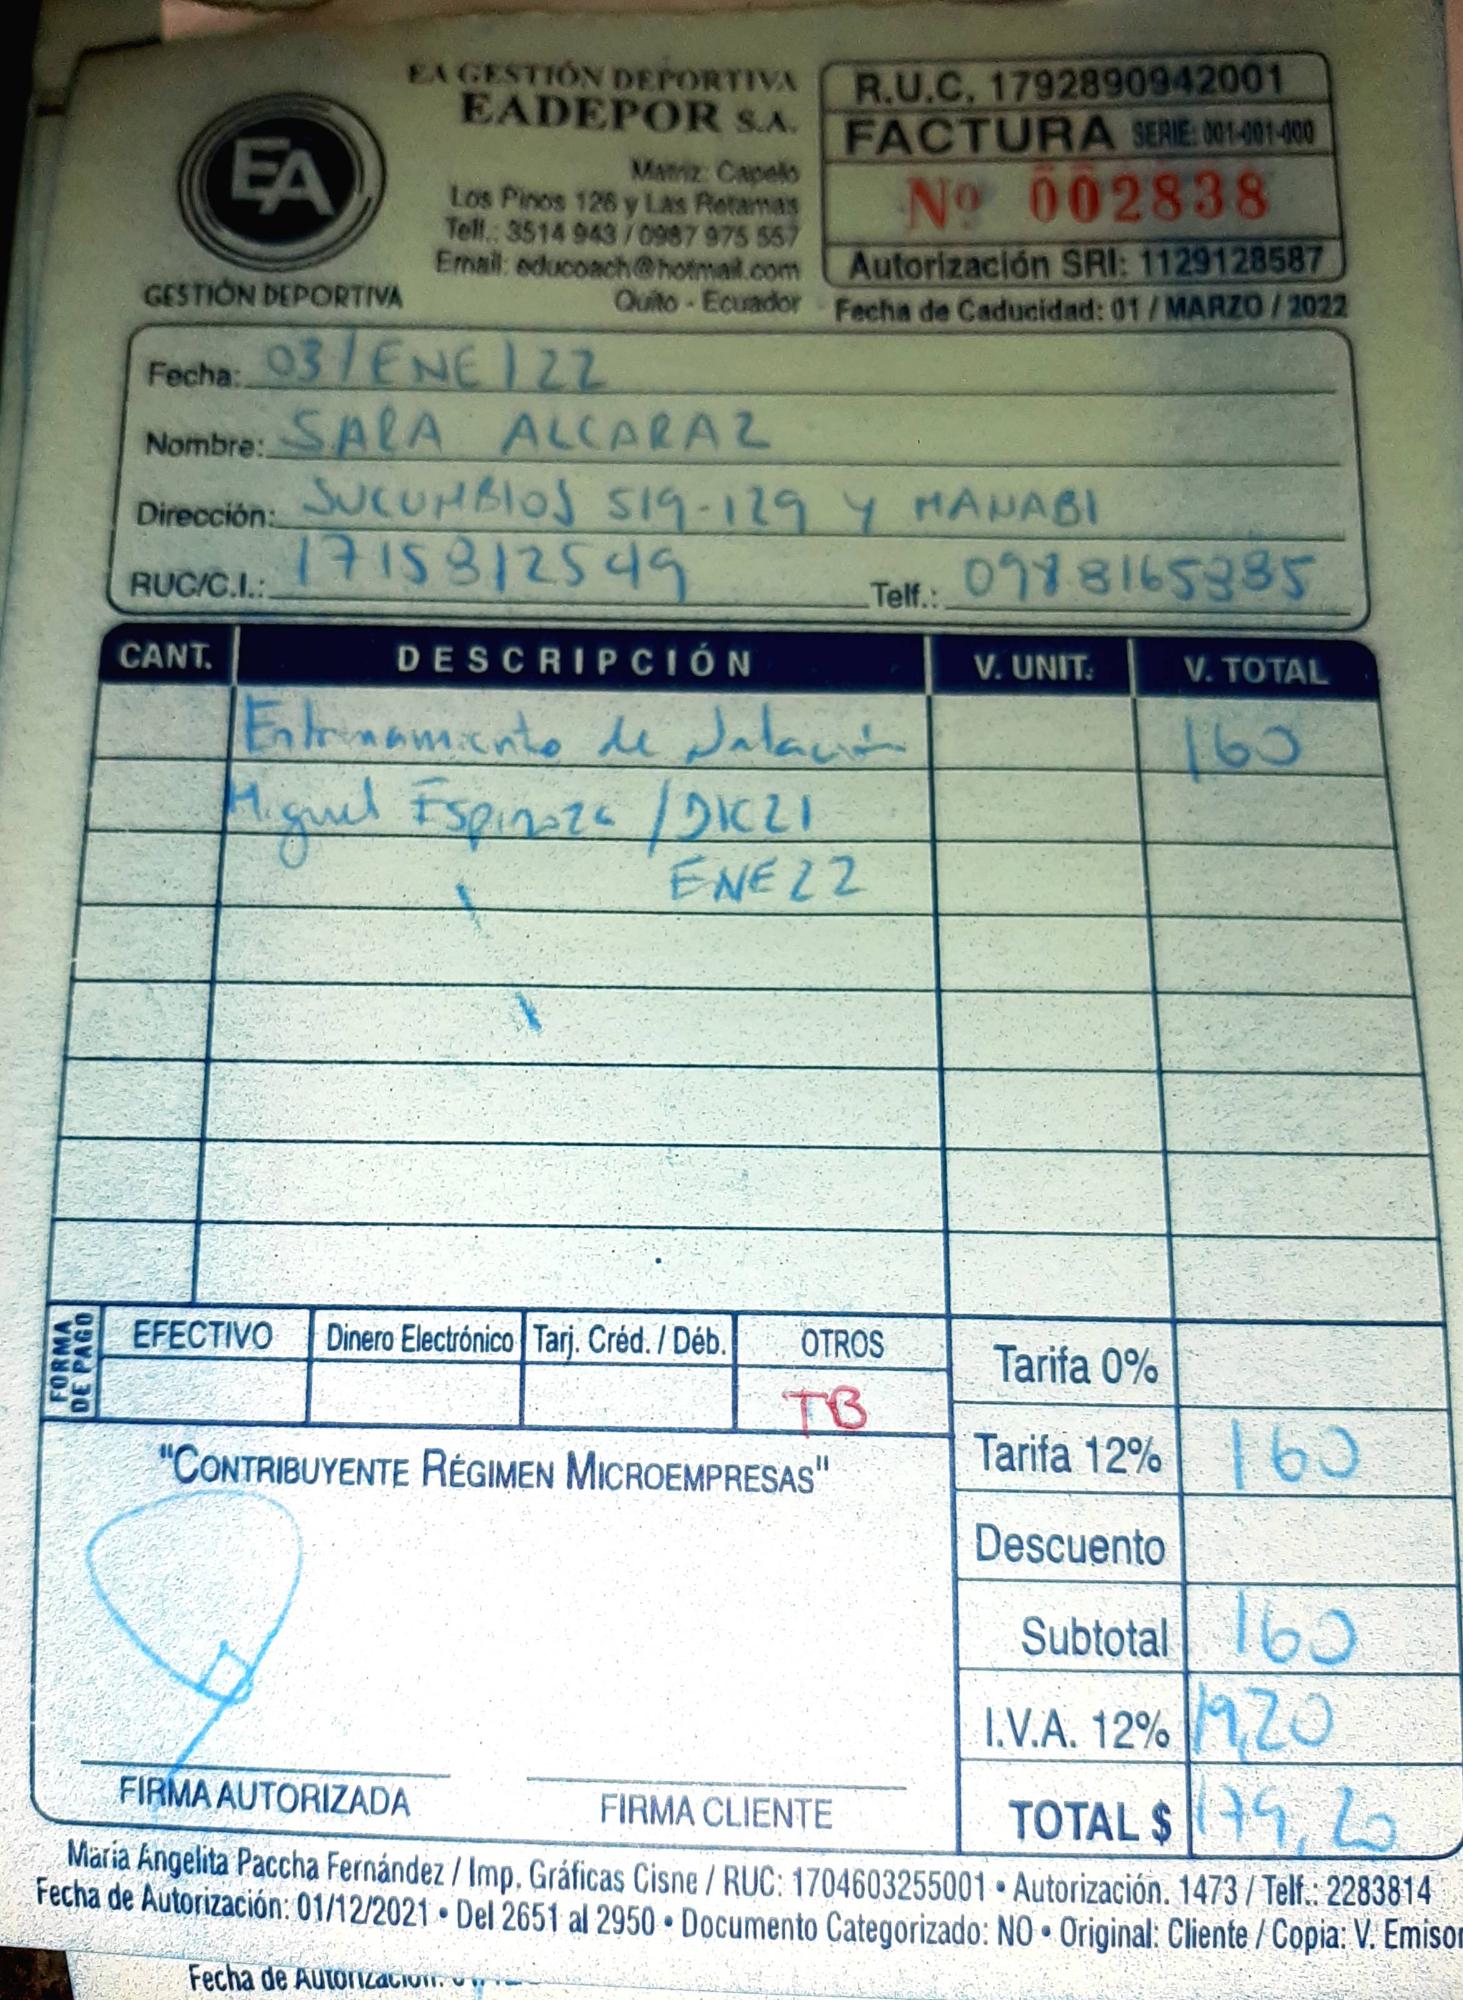 EA GESTIÓN DEPORTIVA
EADEPOR S.A.
EA
GESTIÓN DEPORTIVA
Matriz: Capelo
Los Pinos 126 y Las Retamas
Telf.: 3514 943 / 0987 975 557
Email: educoach@hotmail.com
Quito - Ecuador
R.U.C. 1792890942001
FACTURA SERIE: 001-001-000
Nº 002838
Autorización SRI: 1129128587
Fecha de Caducidad: 01 / MARZO / 2022
Fecha: 03/ENE/22
Nombre: SARA ALCARAZ
Dirección: SUCUMBIOS S19-129 Y MANABI
RUC/C.I.: 1715812549 Telf.:
CANT. DESCRIPCIÓN V. UNIT. V. TOTAL
Entrenamiento de Natación 160
Miguel Espinoza / DIC21
ENE22
FORMA DE PAGO
EFECTIVO Dinero Electrónico Tarj. Créd. / Déb. OTROS
TB
Tarifa 0%
Tarifa 12% 160
Descuento
Subtotal 160
I.V.A. 12% 19,20
TOTAL $ 179,20
"CONTRIBUYENTE RÉGIMEN MICROEMPRESAS"
FIRMA AUTORIZADA FIRMA CLIENTE
María Angelita Paccha Fernández / Imp. Gráficas Cisne / RUC: 1704603255001 • Autorización. 1473 / Telf.: 2283814
Fecha de Autorización: 01/12/2021 • Del 2651 al 2950 • Documento Categorizado: NO • Original: Cliente / Copia: V. Emisor
Fecha de Autorización: